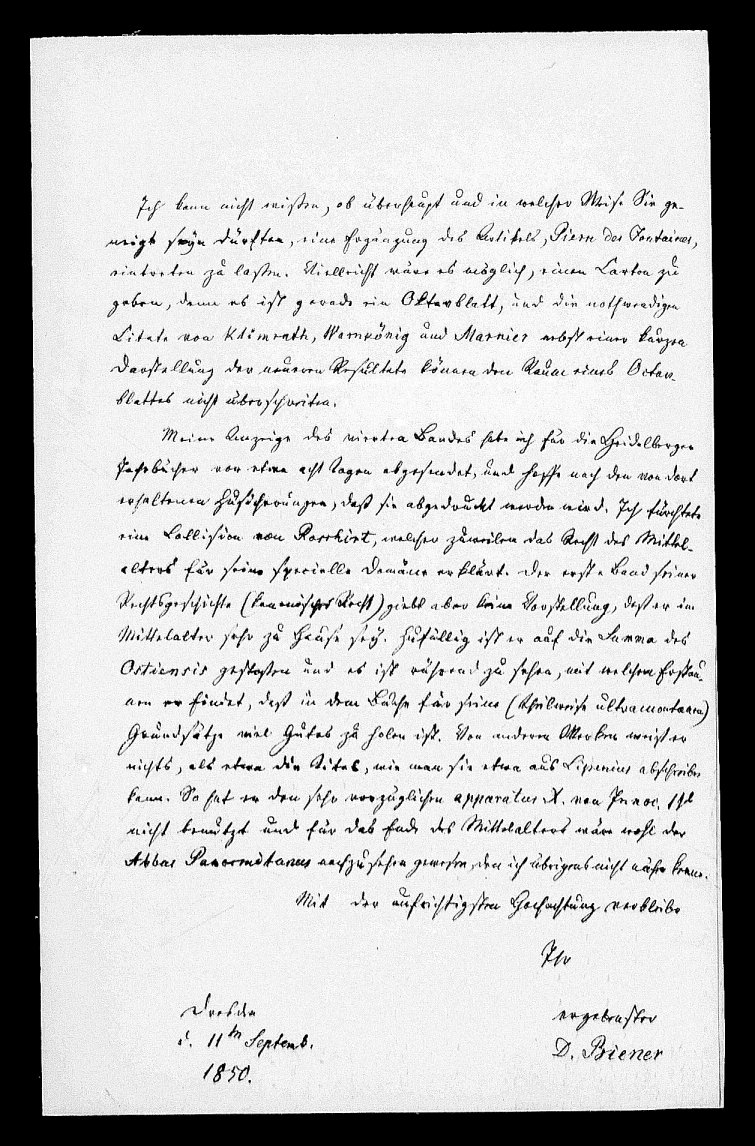 Ich kann nicht wissen, ob überhaupt und in welcher Weise Sie ge-
neigt seyn dürften, eine Ergänzung des Artikels, Pierre des Fontaines,
eintreten zu lassen. Vielleicht wäre es möglich, einen Carton zu
geben, denn es ist gerade ein Oktavblatt, und die nothwendigen
Citate von Klimrath, Warnkönig und Marnier nebst einer kurzen
Darstellung der neueren Resultate können den Raum eines Octav-
blattes nicht überschreiten.
Meine Anzeige des vierten Bandes habe ich für die Heidelberger
Jahrbücher vor etwa acht Tagen abgesendet, und hoffe nach den von dort
erhaltenen Zusicherungen, daß sie abgedruckt werden wird. Ich fürchtete
eine Collision von Rosshirt, welcher zuweilen das Recht des Mittel-
alters für seine specielle Domäne erklärt. Der erste Band seiner
Rechtsgeschichte (kanonisches Recht) giebt aber keine Vorstellung, daß er im
Mittelalter sehr zu Hause sey. Zufällig ist er auf die Summa des
Ostiensis gestoßen und es ist rührend zu sehen, mit welchem Erstau-
nen er findet, daß in dem Buche für seine (theilweise ultramontanen)
Grundsätze viel Gutes zu holen ist. Von anderen Werken weiß er
nichts, als etwa die Titel, wie man sie etwa aus Lipenius abschreiben
kann. So hat er den sehr vorzüglichen apparatus X. von Innoc. IV
nicht benutzt und für das Ende des Mittelalters wäre wohl der
Abbas Panormitanus nachzusehen gewesen, den ich übrigens nicht näher kenne.
Mit der aufrichtigsten Hochachtung verbleibe
Ihr
Dresden
d. 11ten Septemb.
1850.
ergebenster
D. Biener